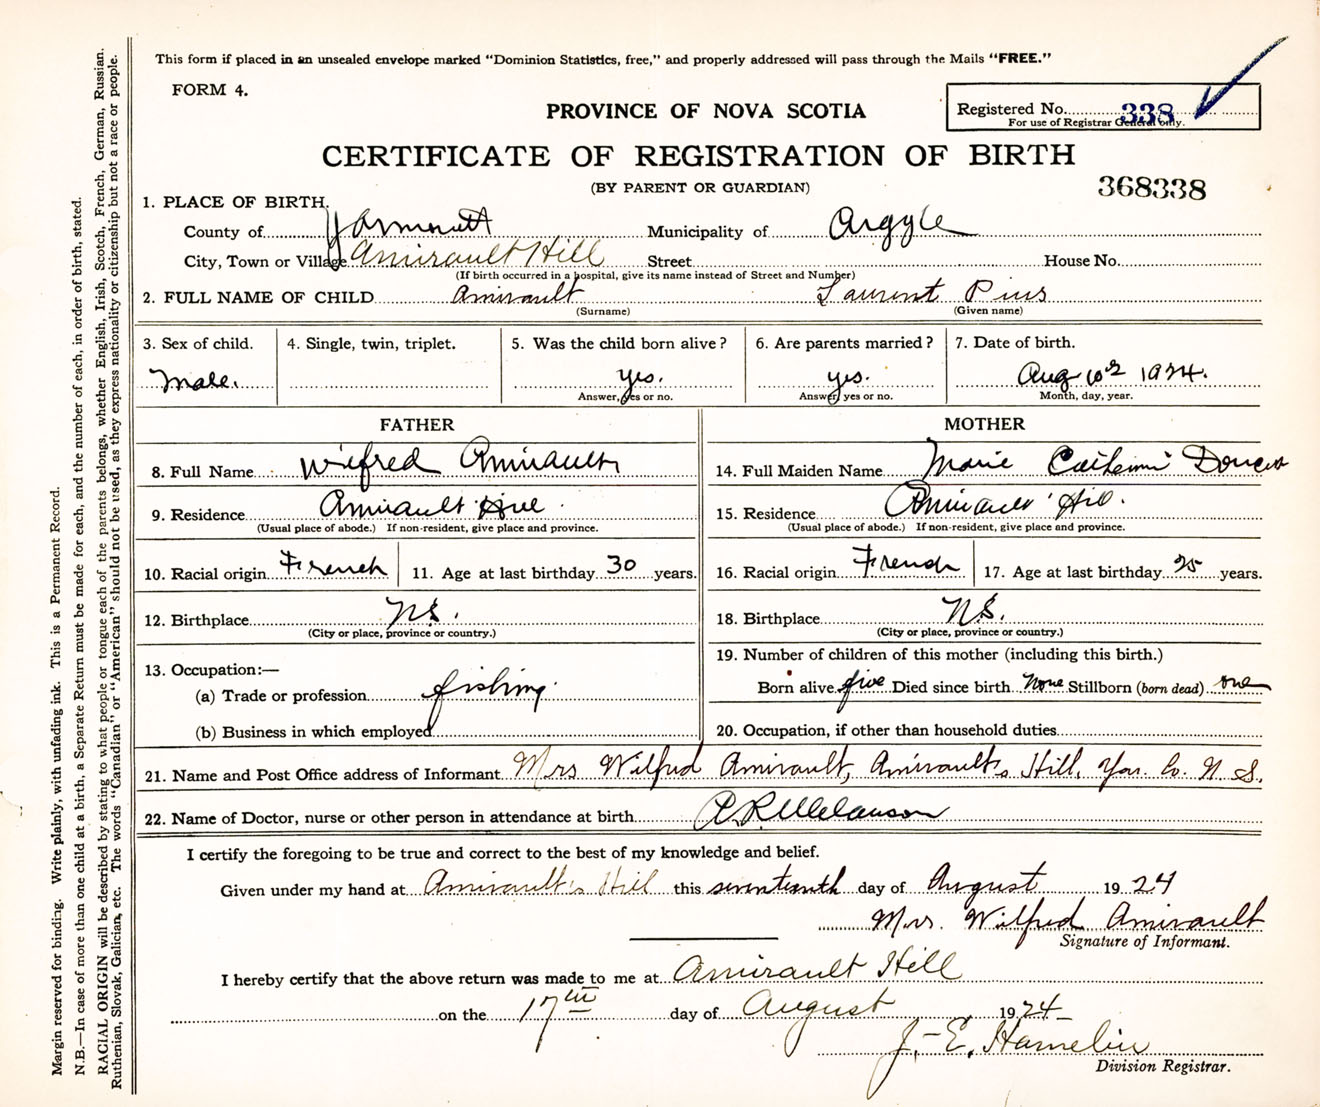 This form if placed in an unsealed envelope marked "Dominion Statistics, free," and properly addressed will pass through the Mails "FREE."
FORM 4.
PROVINCE OF NOVA SCOTIA
Registered No. 338
For use of Registrar General only.
CERTIFICATE OF REGISTRATION OF BIRTH
(BY PARENT OR GUARDIAN)
368338
1. PLACE OF BIRTH.
County of Yarmouth Municipality of Argyle
City, Town or Village Amirault Hill Street House No.
(If birth occurred in a hospital, give its name instead of Street and Number)
2. FULL NAME OF CHILD Amirault Laurent Pius
(Surname) (Given name)
3. Sex of child. 4. Single, twin, triplet. 5. Was the child born alive? 6. Are parents married? 7. Date of birth.
Male. yes. yes. Aug 10 1924.
Answer, yes or no. Answer, yes or no. Month, day, year.
FATHER MOTHER
8. Full Name Wilfred Amirault 14. Full Maiden Name Marie Catherine Doucet
9. Residence Amirault Hill 15. Residence Amirault Hill.
(Usual place of abode.) If non-resident, give place and province. (Usual place of abode.) If non-resident, give place and province.
10. Racial origin French 11. Age at last birthday 30 years. 16. Racial origin French 17. Age at last birthday 25 years.
12. Birthplace N.S. 18. Birthplace N.S.
(City or place, province or country.) (City or place, province or country.)
13. Occupation:— 19. Number of children of this mother (including this birth.)
(a) Trade or profession fishing Born alive five Died since birth None Stillborn (born dead) one
(b) Business in which employed 20. Occupation, if other than household duties
21. Name and Post Office address of Informant Mrs Wilfred Amirault, Amirault's Hill, Yar. Co. N. S.
22. Name of Doctor, nurse or other person in attendance at birth A. R. Melanson
I certify the foregoing to be true and correct to the best of my knowledge and belief.
Given under my hand at Amirault's Hill this seventeenth day of August 1924
Mrs. Wilfred Amirault
Signature of Informant.
I hereby certify that the above return was made to me at Amirault Hill
on the 17th day of August 1924
J.-E. Hamelin
Division Registrar.
Margin reserved for binding. Write plainly, with unfading ink. This is a Permanent Record.
N.B.—In case of more than one child at a birth, a Separate Return must be made for each, and the number of each, in order of birth, stated.
RACIAL ORIGIN will be described by stating to what people or tongue each of the parents belongs, whether English, Irish, Scotch, French, German, Russian.
Ruthenian, Slovak, Galician, etc. The words "Canadian" or "American" should not be used, as they express nationality or citizenship but not a race or people.